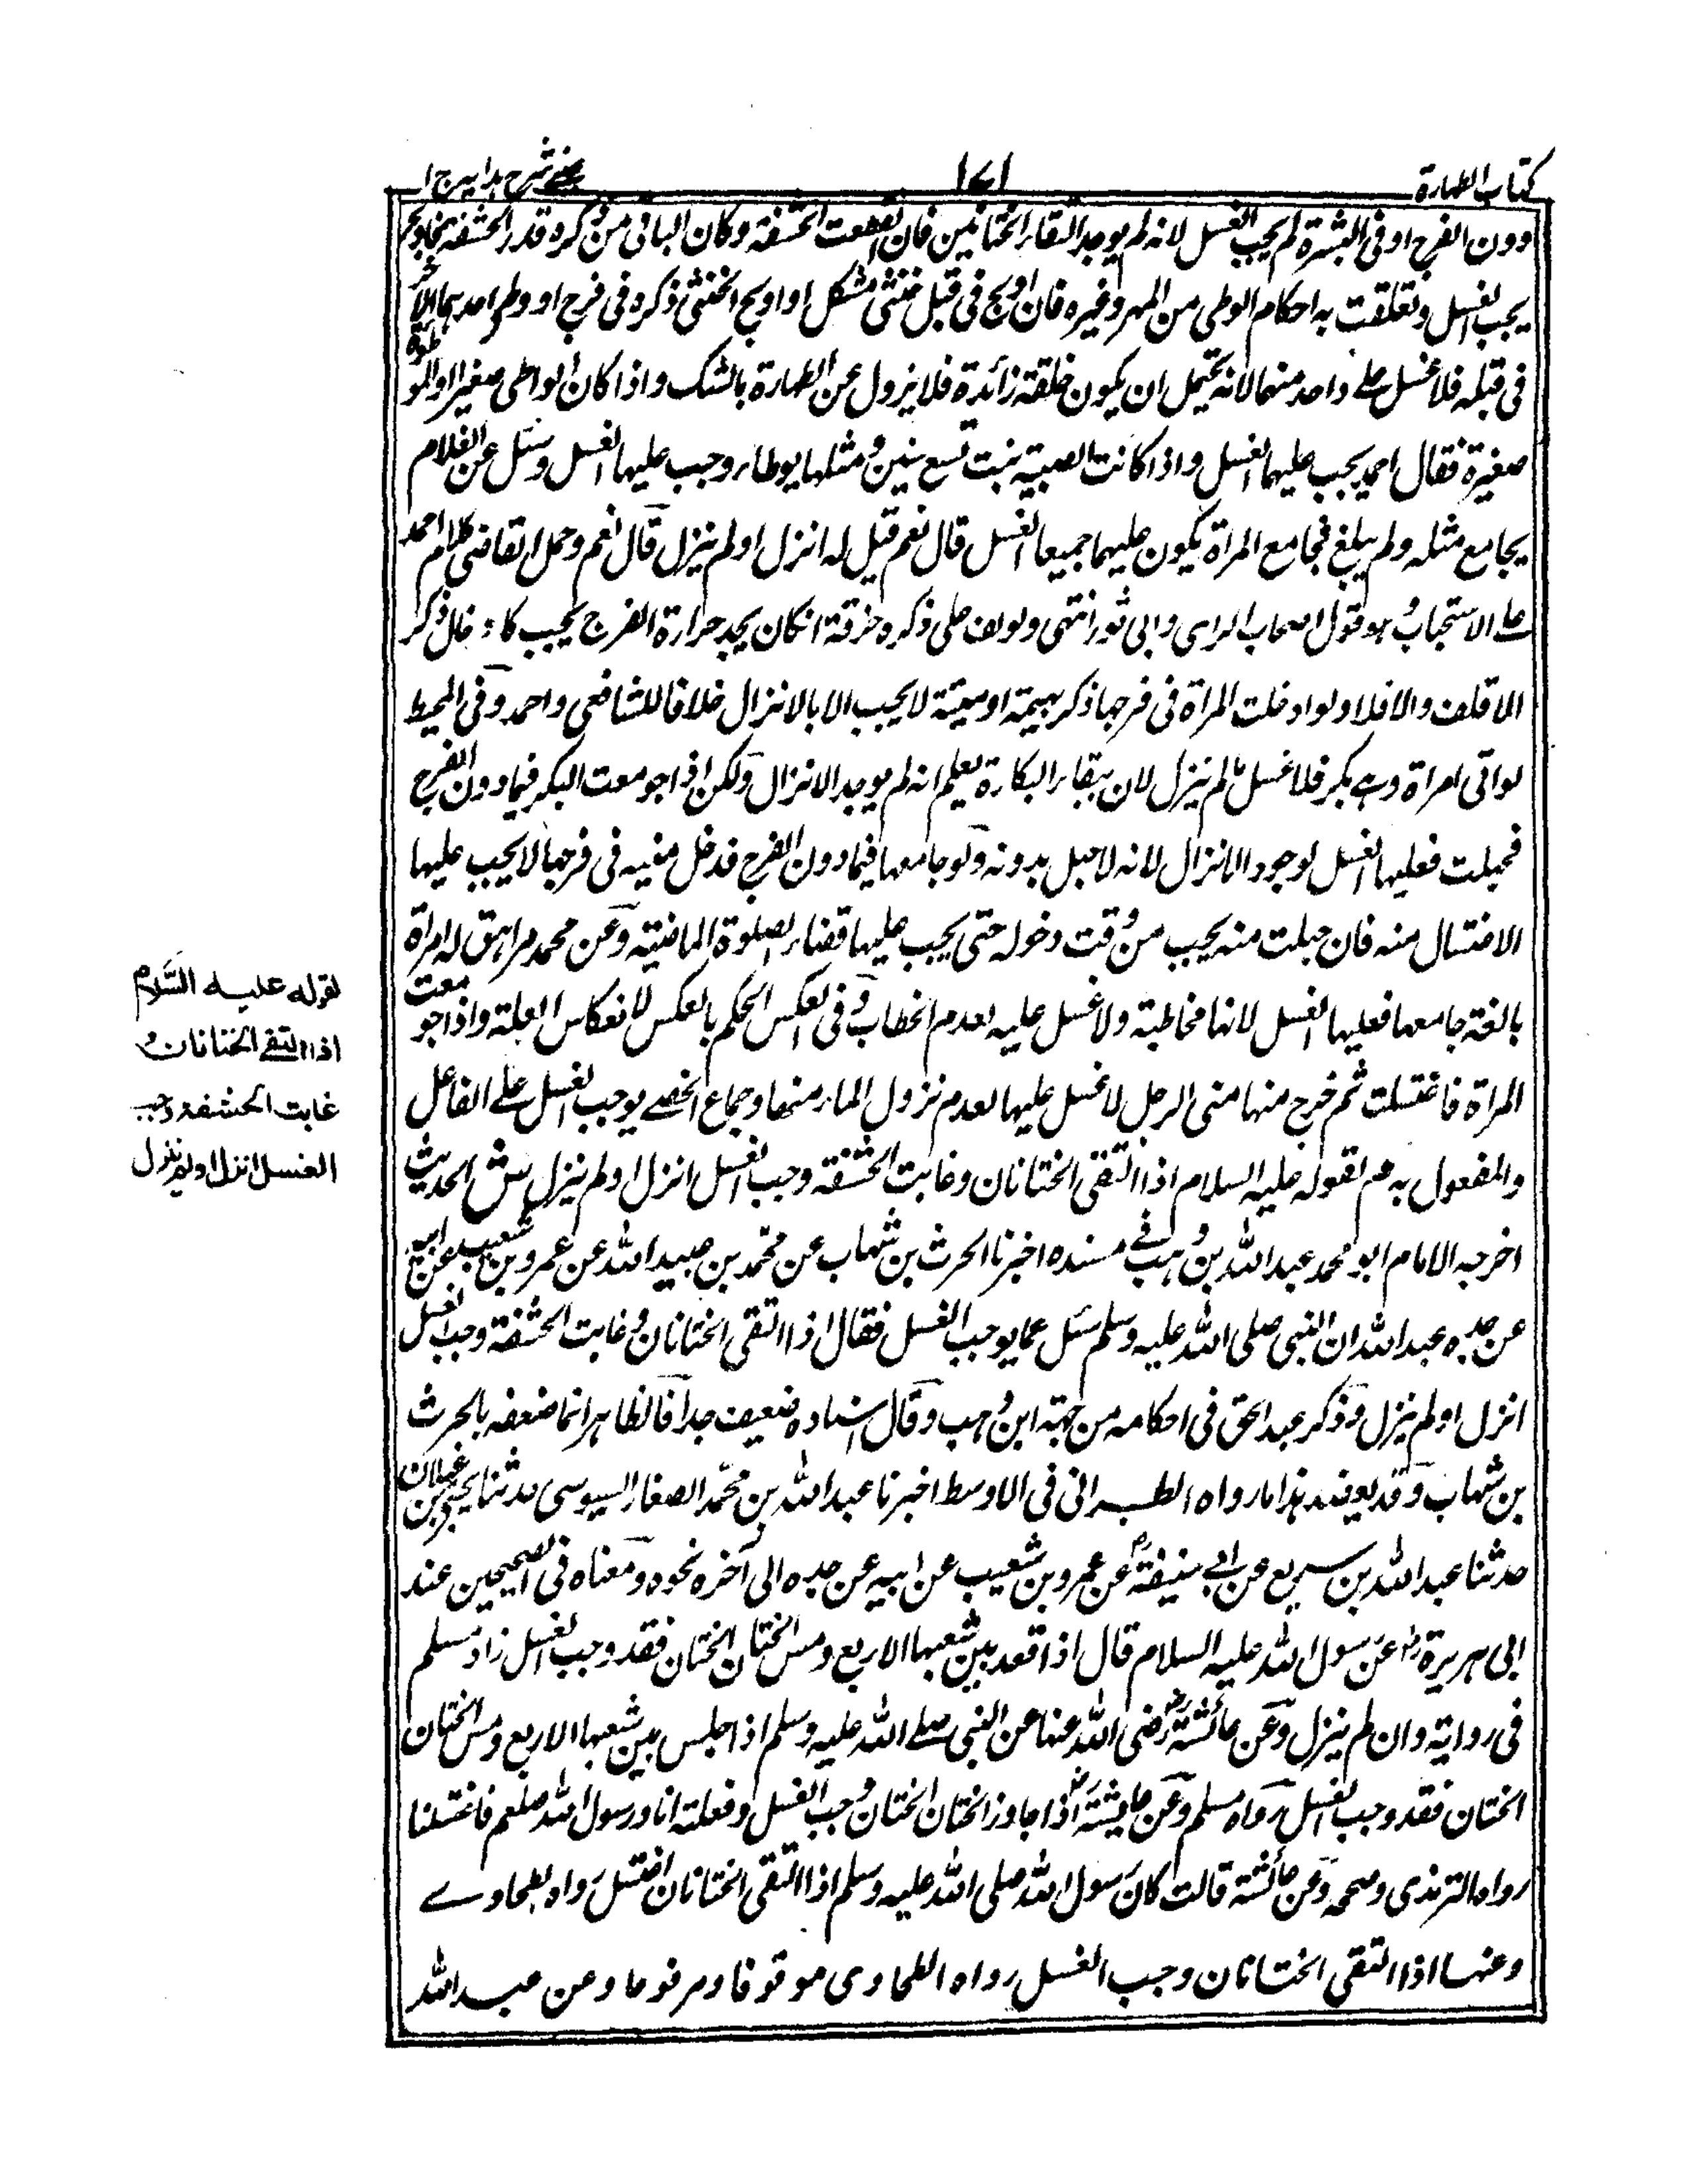 كتاب الطهارة
۱۷۱
عينى شرح هدايه ج ۱
دون الفرج او فى البشرة لم يجب الغسل لانه لم يوجد التقاء الختانين فان انقطعت الحشفة وكان الباقى من ذكره قدر الحشفة فاولج
يجب الغسل وتعلقت به احكام الوطى من المهر وغيره فان اولج فى قبل خنثى مشكل او اولج الخنثى ذكره فى فرج او وطى احدهما الآخر
فى قبله فلا غسل على واحد منهما لانه يحتمل ان يكون خلقة زائدة فلا يزول عن الطهارة بالشك واذا كان الواطى صغيرا او الموطوءة
صغيرة فقال احمد يجب عليهما الغسل واذا كانت الصبية بنت تسع سنين ومثلها يوطاء وجب عليها الغسل وسئل عن الغلام
يجامع مثله ولم يبلغ فجامع المراة يكون عليهما جميعا الغسل قال نعم قيل له انزل او لم ينزل قال نعم وحمل القاضى كلام احمد
على الاستحباب وهو قول اصحاب الراى وابى ثور انتهى ولو لف على ذكره خرقة انكان يجد حرارة الفرج يجب كادخال ذكر
الاقلف والا فلا ولو ادخلت المراة فى فرجها ذكر بهيمة او ميتة لا يجب الا بالانزال خلافا للشافعى واحمد وفى المحيط
لو اتى امراة وهى بكر فلا غسل ما لم ينزل لان ببقاء البكارة يعلم انه لم يوجد الانزال ولكن اذا جومعت البكر فيما دون الفرج
فحبلت فعليها الغسل لوجود الانزال لانه لا حبل بدونه ولو جامعها فيما دون الفرج فدخل منيه فى فرجها لا يجب عليها
الاغتسال منه فان حبلت منه يجب من وقت دخوله حتى يجب عليها قضاء الصلوة الماضية وعن محمد مراهق له امراة
بالغة جامعها فعليها الغسل لانها مخاطبة ولا غسل عليه لعدم الخطاب وفى العكس الحكم بالعكس لانعكاس العلة واذا جومعت
المراة فاغتسلت ثم خرج منها منى الرجل لا غسل عليها لعدم نزول الماء منها وجماع الخصى يوجب الغسل على الفاعل
والمفعول به م لقوله عليه السلام اذا التقى الختانان وغابت الحشفة وجب الغسل انزل او لم ينزل ش الحديث
اخرجه الامام ابو محمد عبد الله بن وهب فى مسنده اخبرنا الحرث بن شهاب عن محمد بن عبيد الله عن عمرو بن شعيب عن ابيه
عن جده عبد الله ان النبى صلى الله عليه وسلم سئل عما يوجب الغسل فقال اذا التقى الختانان وغابت الحشفة وجب الغسل
انزل او لم ينزل وذكر عبد الحق فى احكامه من جهة ابن وهب وقال اسناده ضعيف جدا فالظاهر انما ضعفه بالحرث
بن شهاب وقد يعضد هذا ما رواه الطبرانى فى الاوسط اخبرنا عبد الله بن محمد الصفار السوسى حدثنا يحيى بن غيلان
حدثنا عبد الله بن بزيع عن ابى حنيفة عن عمرو بن شعيب عن ابيه عن جده الى آخره نحوه ومعناه فى الصحيحين عند
ابى هريرة رض عن رسول الله عليه السلام قال اذا قعد بين شعبها الاربع ومس الختان الختان فقد وجب الغسل زاد مسلم
فى رواية وان لم ينزل وعن عائشة رضى الله عنها عن النبى صلى الله عليه وسلم اذا جلس بين شعبها الاربع ومس الختان
الختان فقد وجب الغسل رواه مسلم وعن عايشة رض اذا جاوز الختان الختان وجب الغسل وفعلته انا ورسول الله صلعم فاغتسلنا
رواه الترمذى وصححه وعن عائشة قالت كان رسول الله صلى الله عليه وسلم اذا التقى الختانان اغتسل رواه الطحاوى
وعنها اذا التقى الختانان وجب الغسل رواه الطحاوى موقوفا ومرفوعا وعن عبد الله
لقوله عليه السلام
اذا التقى الختانان و
غابت الحشفة وجب
الغسل انزل او لم ينزل